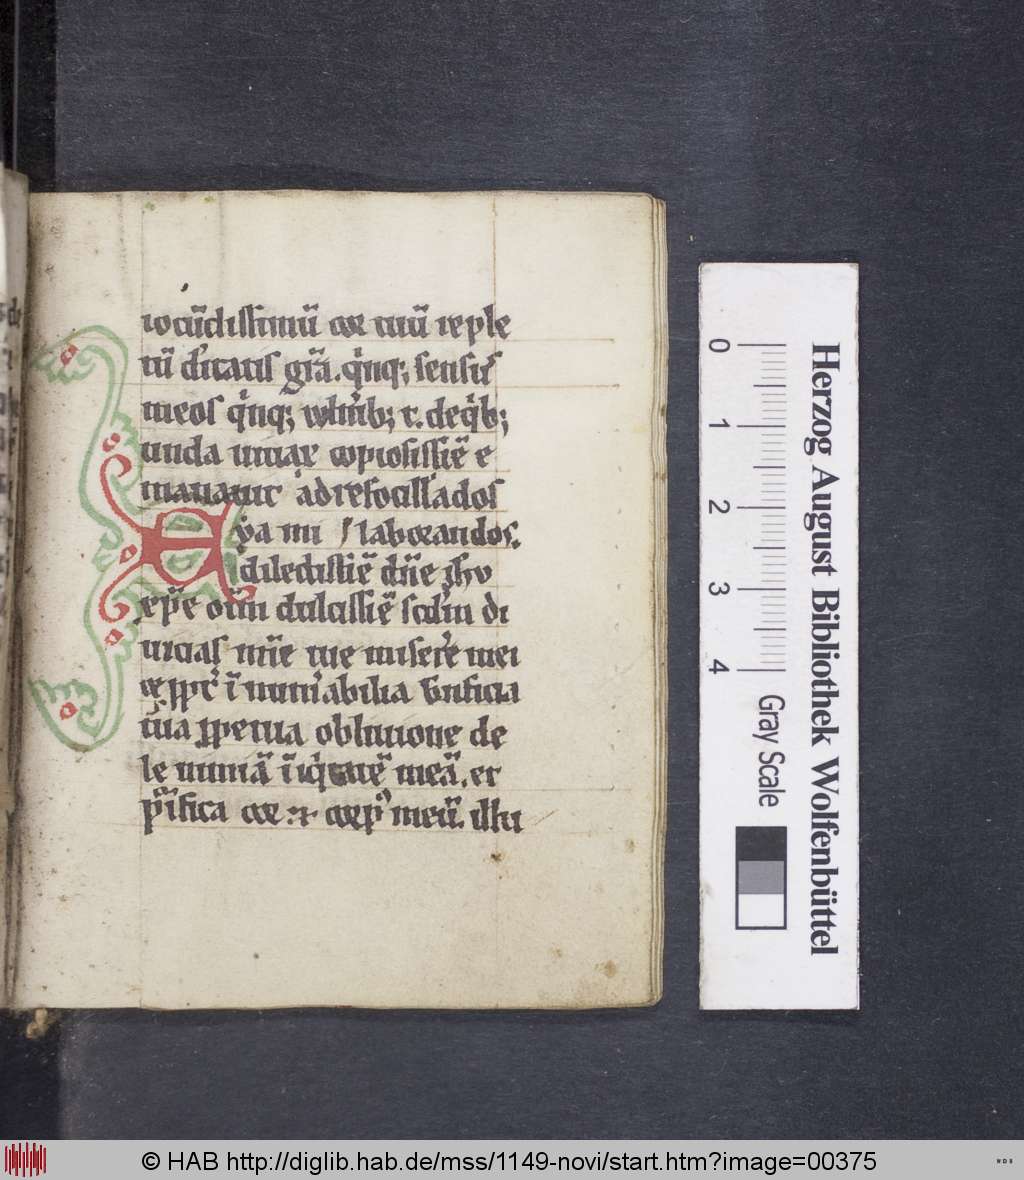 iocūdissimū cor tuū reple
tū diuitaris grā. qinq; sensus
meos qinq; wlnib; t. de qib;
unda uiuax copiosissiē e
manauit ad refocillados
ya mi / laborandos.
dilectissiē dn̄e ihu
xp̄e oīm dulcissiē
mīe tue miserere mei
inumabilia
tua ꝑpetua obliuione de
le mīiā īiqitatē meā. et
pifica cor et corpꝰ meū. illu
Herzog August Bibliothek Wolfenbüttel
0 1 2 3 4
Gray Scale
© HAB http://diglib.hab.de/mss/1149-novi/start.htm?image=00375